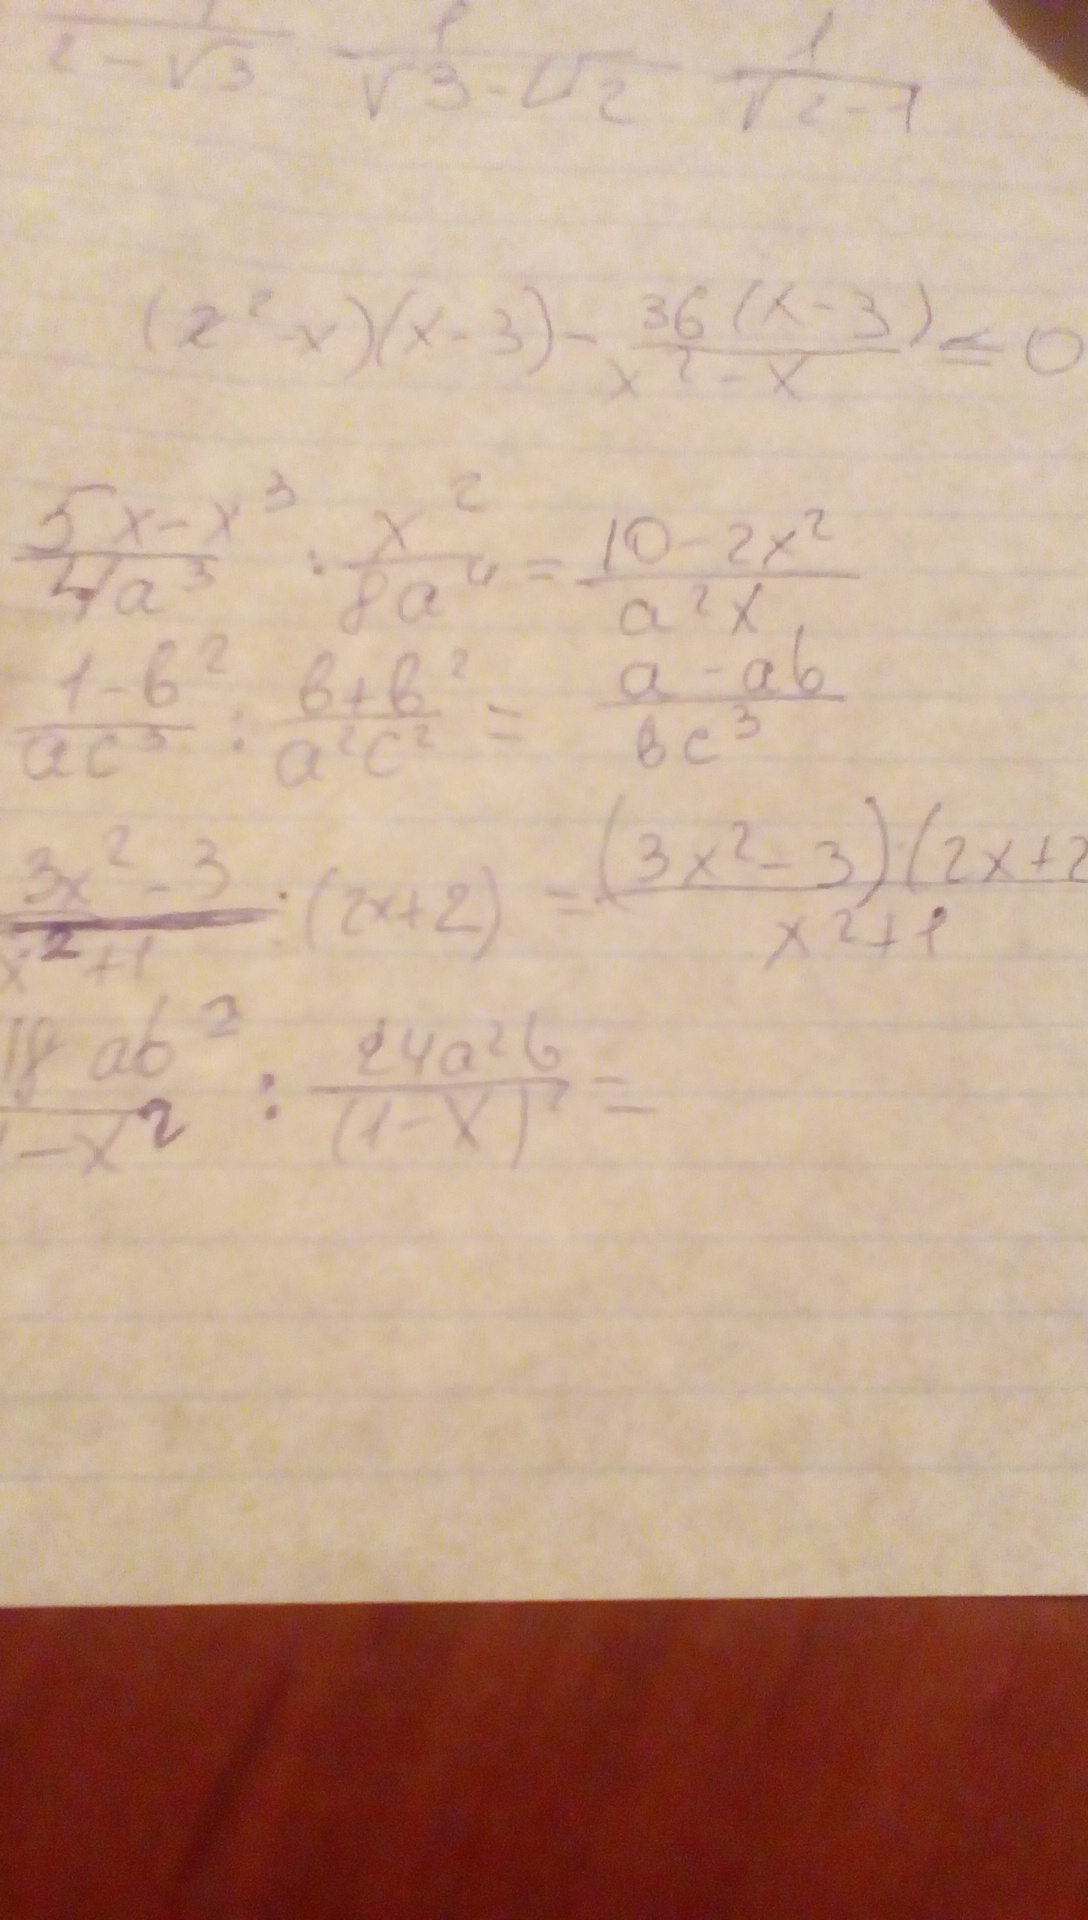 1/(2-√3) 1/(√3-√2) 1/(√2-1)
(x²-x)(x-3) - 36(x-3)/(x²-x) ≤ 0
(5x-x³)/(4a³) : x²/(8a⁴) = (10-2x²)/(a²x)
(1-b²)/(ac³) : (b+b²)/(a²c²) = (a-ab)/(bc³)
(3x²-3)/(x²+1) : (2x+2) = (3x²-3)·(2x+2/(x²+1)
18ab²/(1-x²) : 24a²b/(1-x)² =